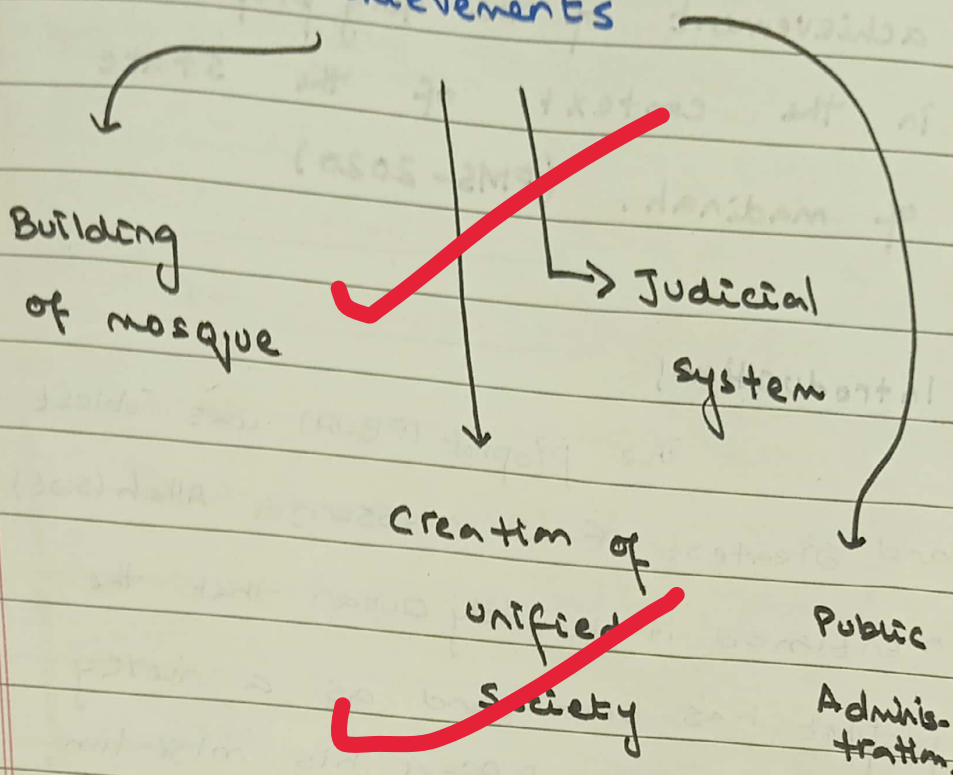 Building
of mosque
Judicial
system
Creation of
unified
society
Public
Adminis-
tration